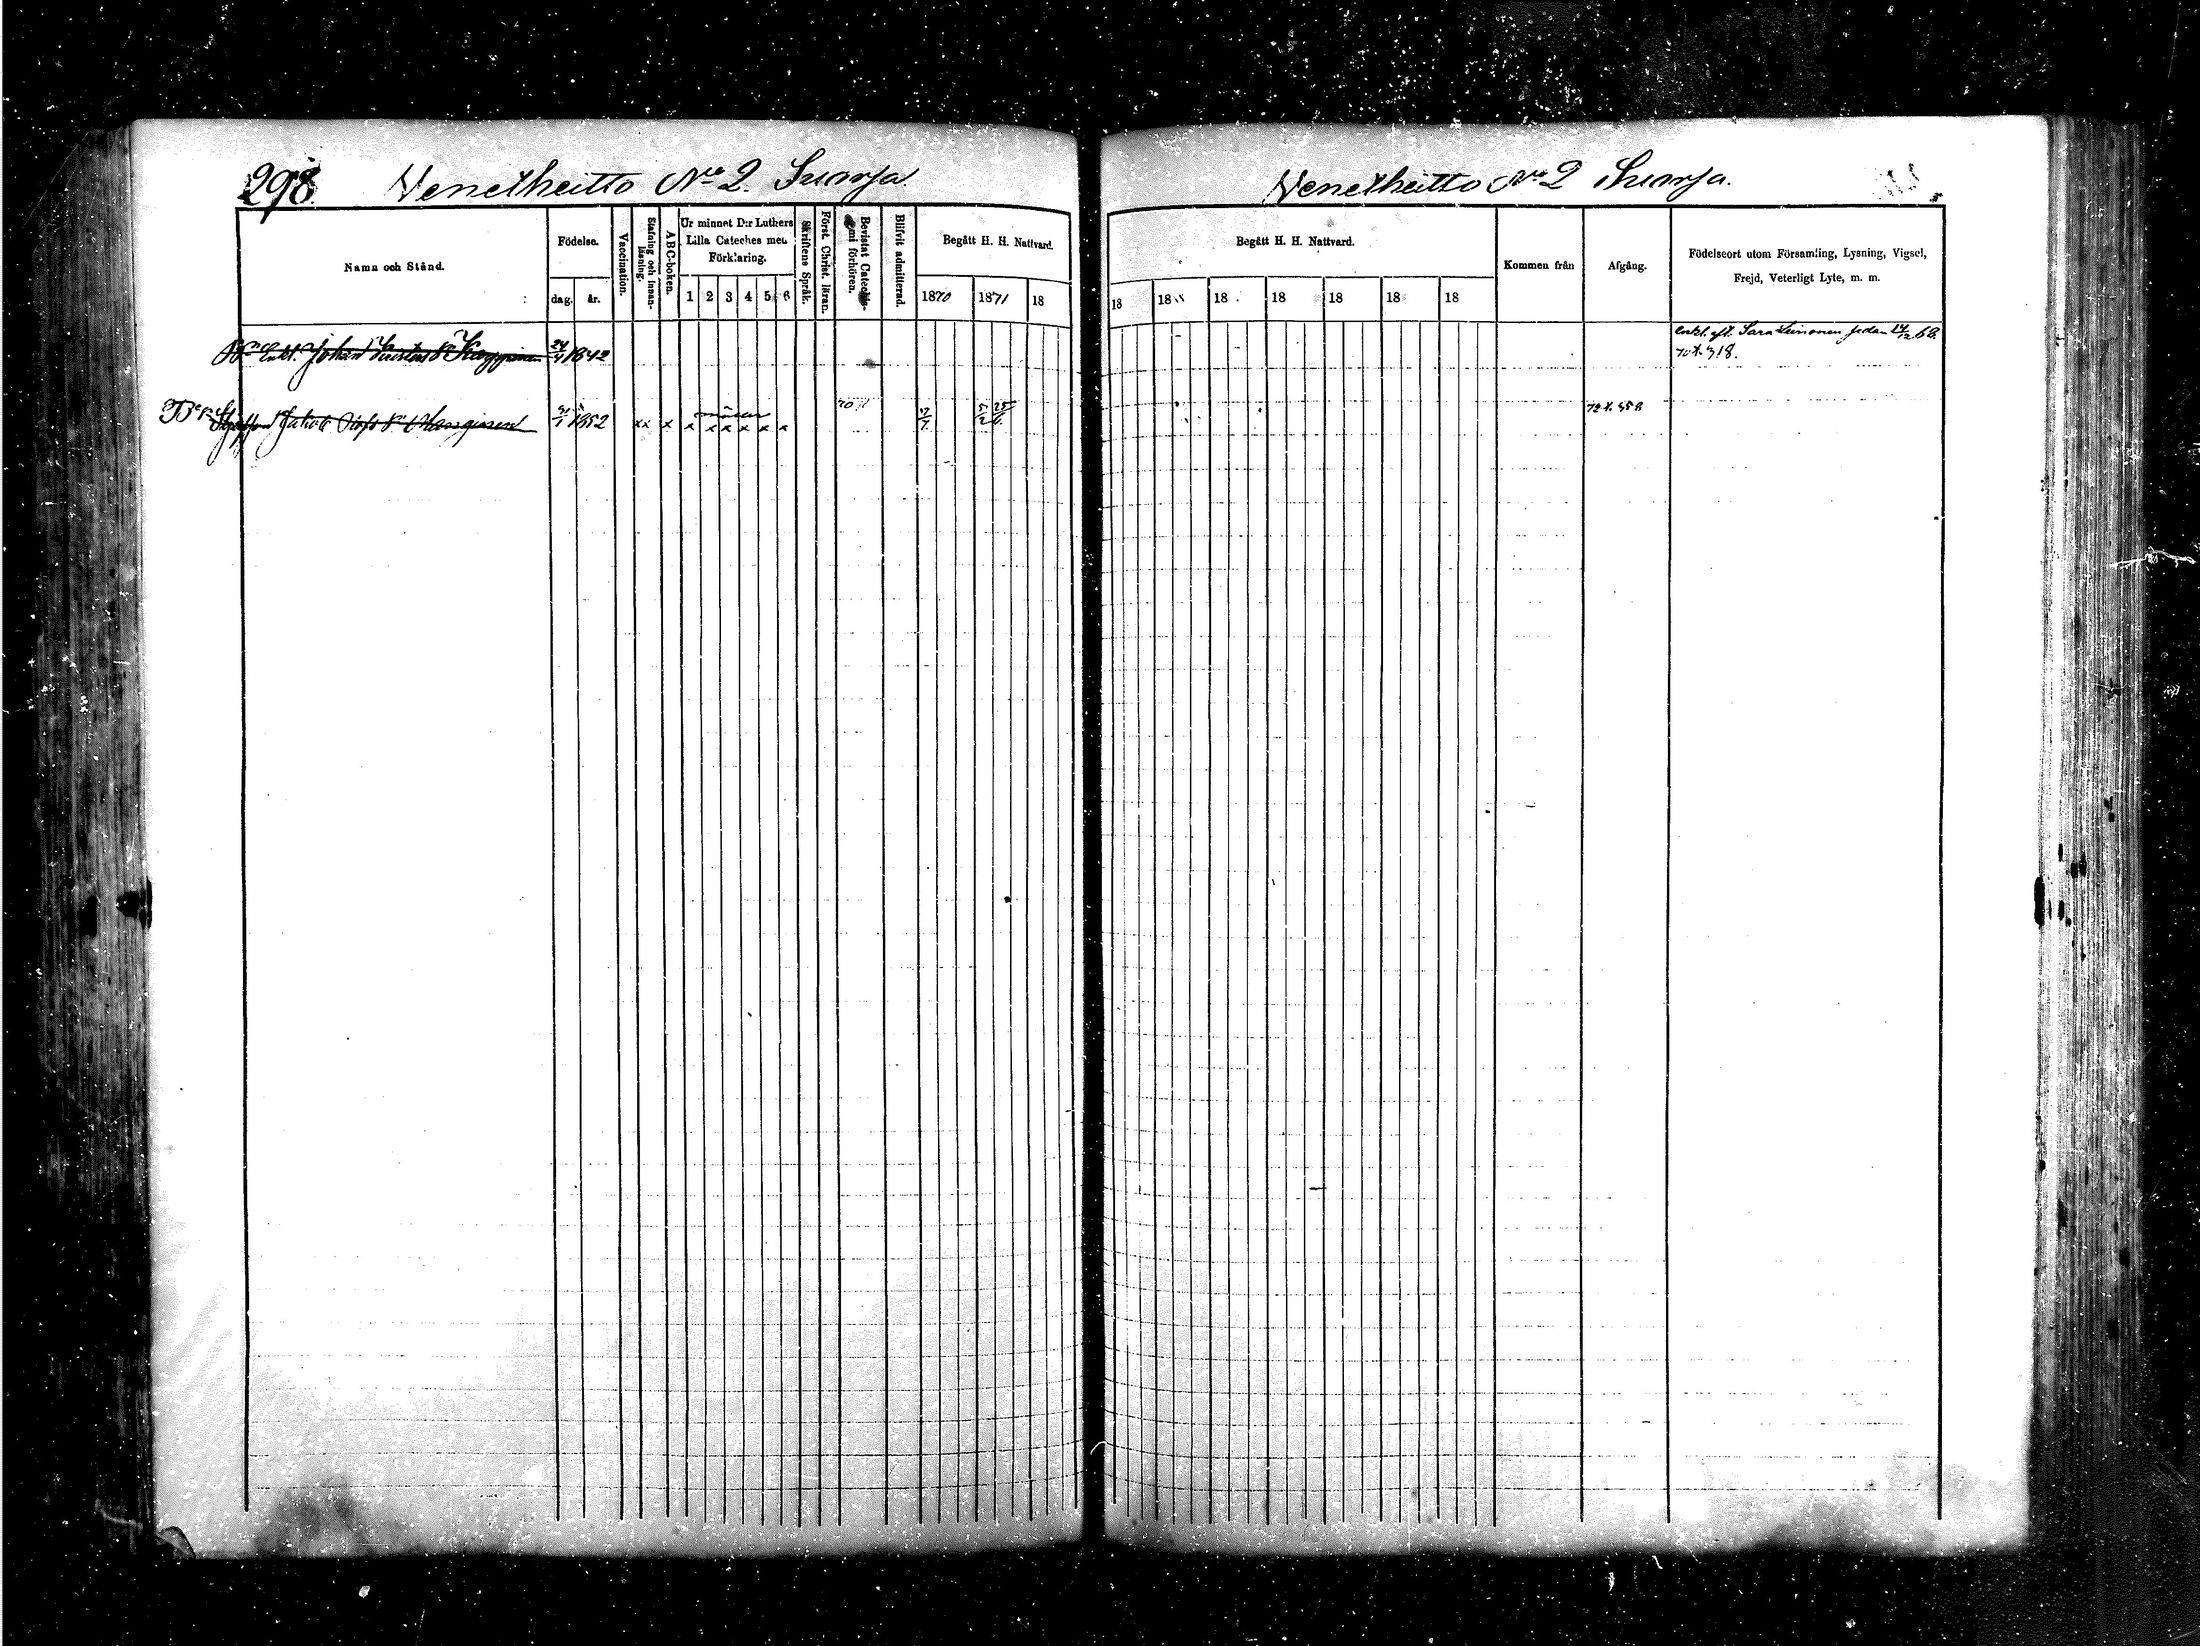 298. Veneheitto No 2. Suorsa.
Namn och Stånd.
Födelse.
dag. år.
Vaccination.
Stafning och innanläsning.
ABC-boken.
Ur minnet D:r Luthers Lilla Cateches med Förklaring.
1 2 3 4 5 6
Skriftens Språk.
Först. Christ. läran.
Bevistat Catechismi förhören.
Blifvit admitterad.
Begått H. H. Nattvard.
1870 1871 18
Enkl. Johan 24/4 1842
Jakob 1852 xx x x x x x x x
Veneheitto No 2 Suorsa.
Begått H. H. Nattvard.
18 18 18 18 18 18 18
Kommen från
Afgång.
Födelseort utom Församling, Lysning, Vigsel, Frejd, Veterligt Lyte, m. m.
Enkl. eft. Sara Leinonen sedan 24/12 68.
70 t. 318.
72 t. 358